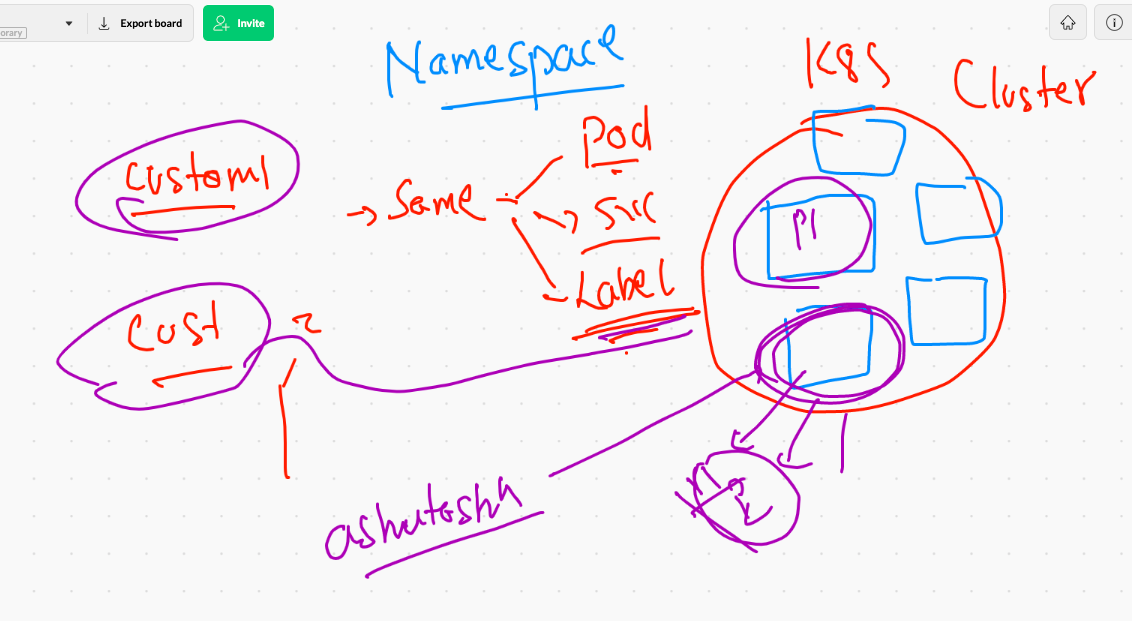 orary
Export board
Invite
Namespace
K8s
Cluster
Pod
custom1
Same
svc
Label
P1
Cust
2
ashutoshh